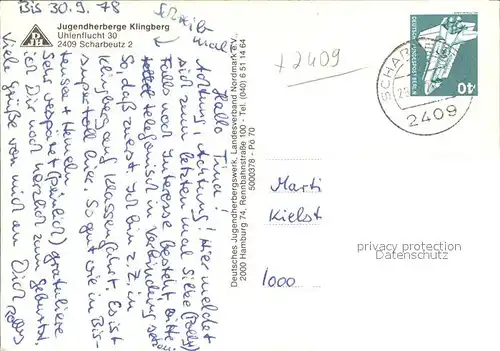 Bis 30.9.78
Schreibt mal
Jugendherberge Klingberg
Uhlenflucht 30
2409 Scharbeutz 2
DJH
Hallo Tina!
Achtung, Achtung! Hier meldet
sich zum letzten mal Silke
Falls noch Interesse besteht, bitte
telefonisch in Verbindung setzen
So, daß zuerst. Ich bin z.Z. in
Klingberg auf Klassenfahrt. Es ist
supertoll hier. So gut wie in Bis-
tensee + Hameln.
Sehr verspätet (peinlich) gratuliere
ich Dir noch herzlich zum Geburtst.
Viele Grüße von mich an Dich
Deutsches Jugendherbergswerk, Landesverband Nordmark e.V.,
2000 Hamburg 74, Rennbahnstraße 100 - Tel. (040) 6 51 14 64
5000378 - Pö 70
+ 2409
DEUTSCHE BUNDESPOST BERLIN
40
SCHAR
2409
Marti
Kielst
1000
privacy protection
Datenschutz